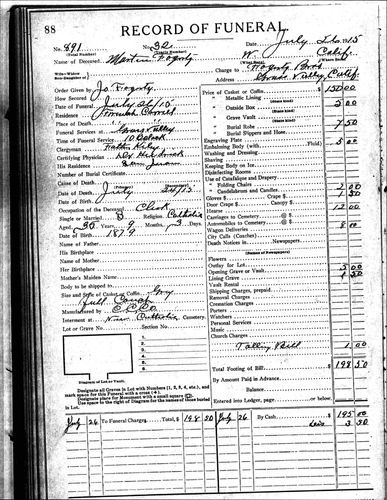 88 RECORD OF FUNERAL
No. 891 No. 32 Date July 26 1915
(Total Number) (Yearly Number)
Name of Deceased Martin Fogarty W. Calif.
Wife—Widow
Son—Daughter of
Charge to Fogarty Bros
Address Grass Valley Calif.
Order Given by Jo. Fogarty
How Secured
Date of Funeral July 26/15
Residence
Place of Death
Funeral Services at Grass Valley
Time of Funeral Service 10 Oclock
Clergyman Father
Certifying Physician Dr
His Residence San
Number of Burial Certificate
Cause of Death
Date of Death July 24/15
Date of Birth
Occupation of the Deceased Clerk
Single or Married S Religion Catholic
Aged 36 Years 9 Months 3 Days
Date of Birth 1879
Name of Father
His Birthplace
Name of Mother
Her Birthplace
Mother's Maiden Name
Body to be shipped to
Size and Style of Casket or Coffin Grey
full Couch
Manufactured by
Interment at Catholic Cemetery
Lot or Grave No. Section No.
1.
2.
3.
4.
5.
6.
Diagram of Lot or Vault.
Designate all Graves in Lot with Numbers (1, 2, 3, 4, etc.), and
mark space for this Funeral with a cross (+).
Designate place for Monument with a small square
Use space to the right of Diagram for the names of those buried
in Lot.
Price of Casket or Coffin $ 150 00
" Metallic Lining
" Outside Box 5 00
" Grave Vault
" Burial Robe 7 50
" Burial Slippers and Hose
Engraving Plate
Embalming Body (with Fluid) 5 00
Washing and Dressing
Shaving
Keeping Body on Ice
Disinfecting Rooms
Use of Catafalque and Drapery
" Folding Chairs 2 00
" Candelabrum and Candles
Gloves $ Crape $
Door Crape $ Canopy $
Hearse 12 00
Carriages to Cemetery @ $
Automobiles to Cemetery @ $
Wagon Deliveries 8 00
City Calls (Coaches)
Death Notices in Newspapers
(Names of Newspapers)
Flowers
Outlay for Lot
Opening Grave or Vault 5 00
Lining Grave 1 50
Vault Rental
Shipping Charges, prepaid
Removal Charges
Cremation Charges
Porters
Watchers
Personal Services
Music
Church Charges
Tolling Bell 1 00
Total Footing of Bill $ 198 50
By Amount Paid in Advance
Balance
Entered into Ledger, page or below.
July 26 To Funeral Charges Total, $ 198 50 July 26 By Cash 195 00
Less 3 50